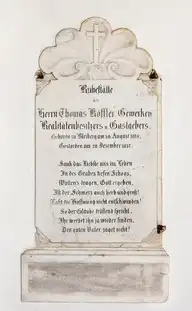 Ruhestätte
des
Herrn Thomas Kofler, Gewerken
Realitätenbesitzers u. Gastgebers.
Geboren zu Bleiberg am 20. August
Gestorben am 20 Dezember 1887.
Sank das Liebste uns im Leben
In des Grabes tiefen Schoos,
Wollen's tragen, Gott ergeben,
Ist der Schmerz auch herb und groß!
Laßt die Hoffnung nicht entschwinden!
So der Glaube tröstend spricht,
Ihr werdet ihn ja wieder finden,
Den guten Vater, zaget nicht!